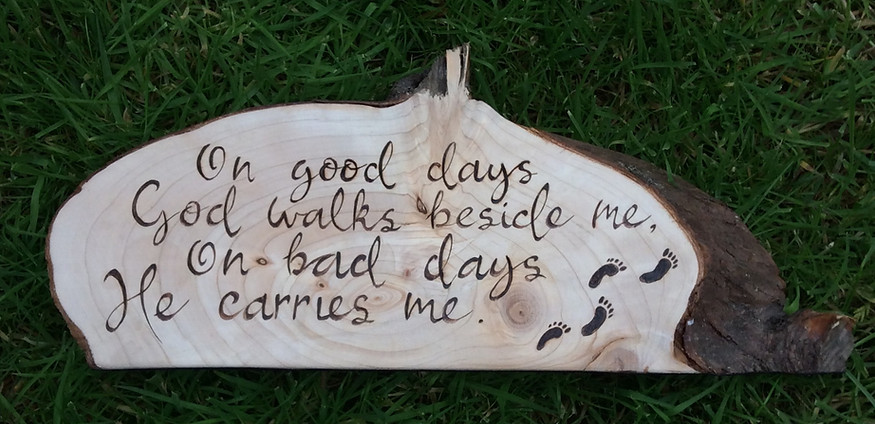 On good days
God walks beside me,
On bad days
He carries me.